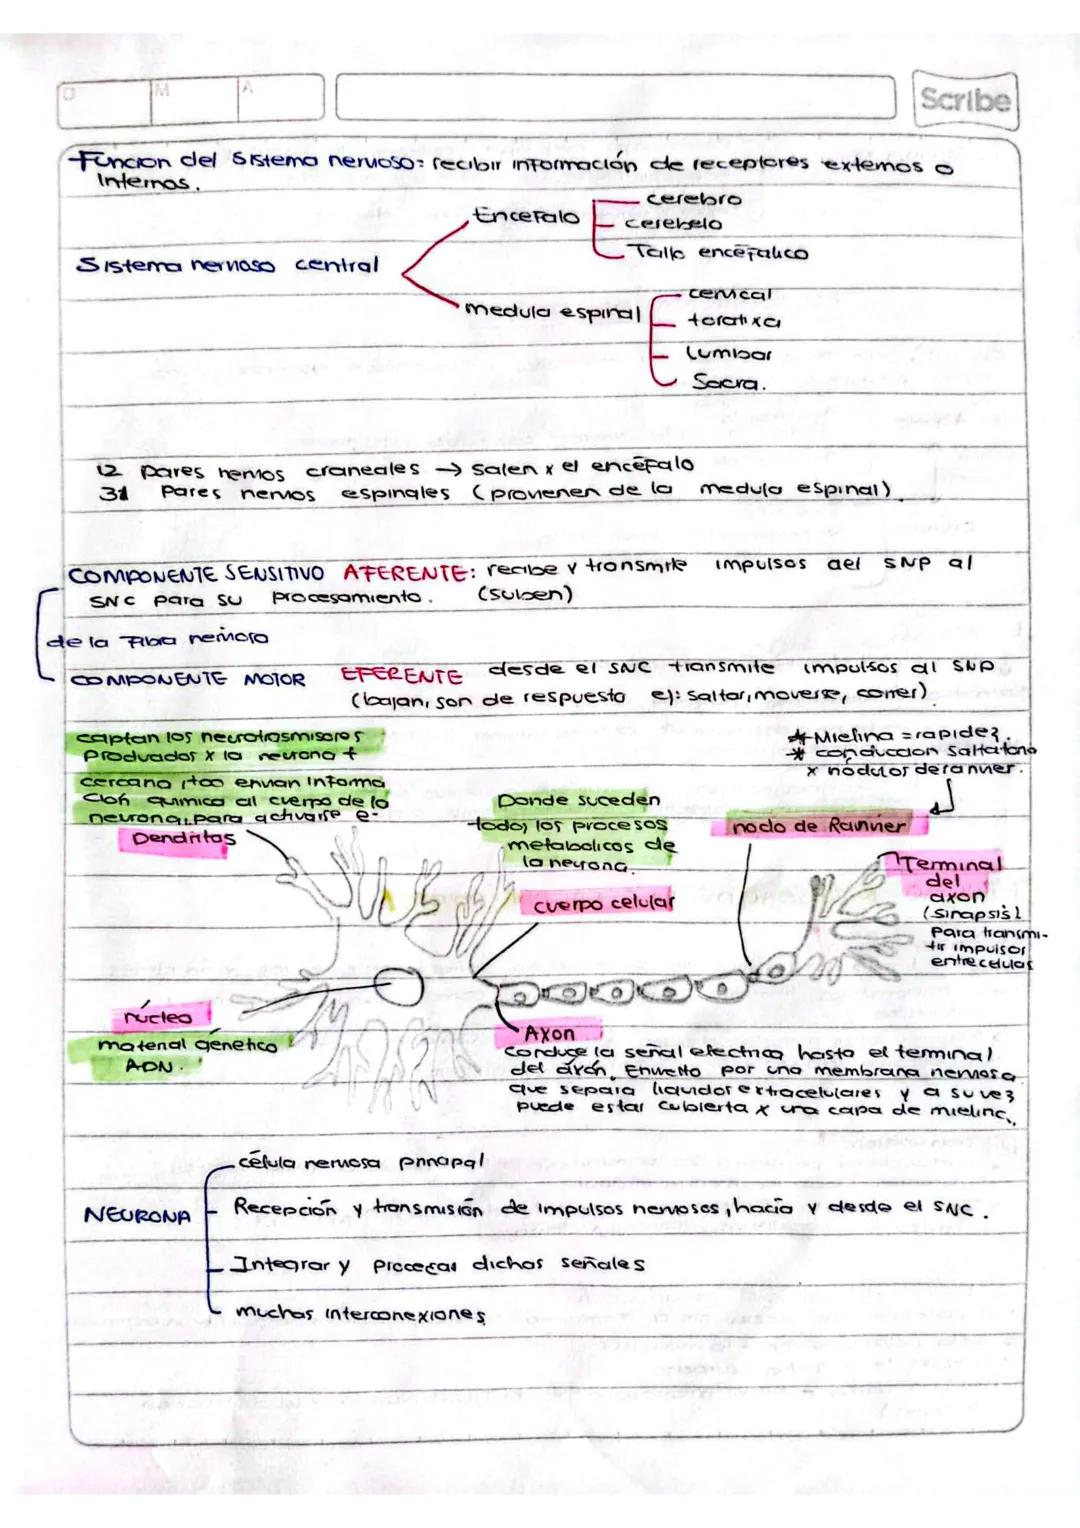 D M A
Scribe
Función del Sistema nervioso: recibir información de receptores externos o
Internos.
Encefalo
cerebro
cerebelo
Tallo encefalico
Sistema nervioso central
medula espinal
cervical
toratixca
Lumbar
Sacra.
12 pares nervios craneales → Salen x el encéfalo
31 Pares nervios espinales (provienen de la medula espinal).
COMPONENTE SENSITIVO AFERENTE: recibe y transmite impulsos del SNP al
SNC para su procesamiento. (suben)
de la Fibra nerviosa
COMPONENTE MOTOR EFERENTE desde el SNC transmite impulsos al SNP
(bajan, son de respuesta ej: saltar, moverse, correr)
captan los neurotrasmisores
Producidos x la neurona +
cercana, too envian Informa
ción quimica al cuerpo de la
neurona, para activarse e-
Dendritas
* Mielina = rapidez.
* conduccion Saltatoria
x nodulos de ranvier.
Donde suceden
todos los procesos
metabolicos de
la neurona.
cuerpo celular
nodo de Ranvier
Terminal
del
axon
(Sinapsis)
Para transmi-
tir impulsos
entre celulas
núcleo
material génetico
ADN.
Axon
Conduce la señal electrica hasta el terminal
del axón. Envuelto por una membrana nerviosa
que separa liquidos extracelulares y a su vez
puede estar cubierta x una capa de mielina.
NEURONA
célula nerviosa principal
Recepción y transmisión de impulsos nerviosos, hacia y desde el SNC.
Integrar y procesar dichas señales
muchas interconexiones